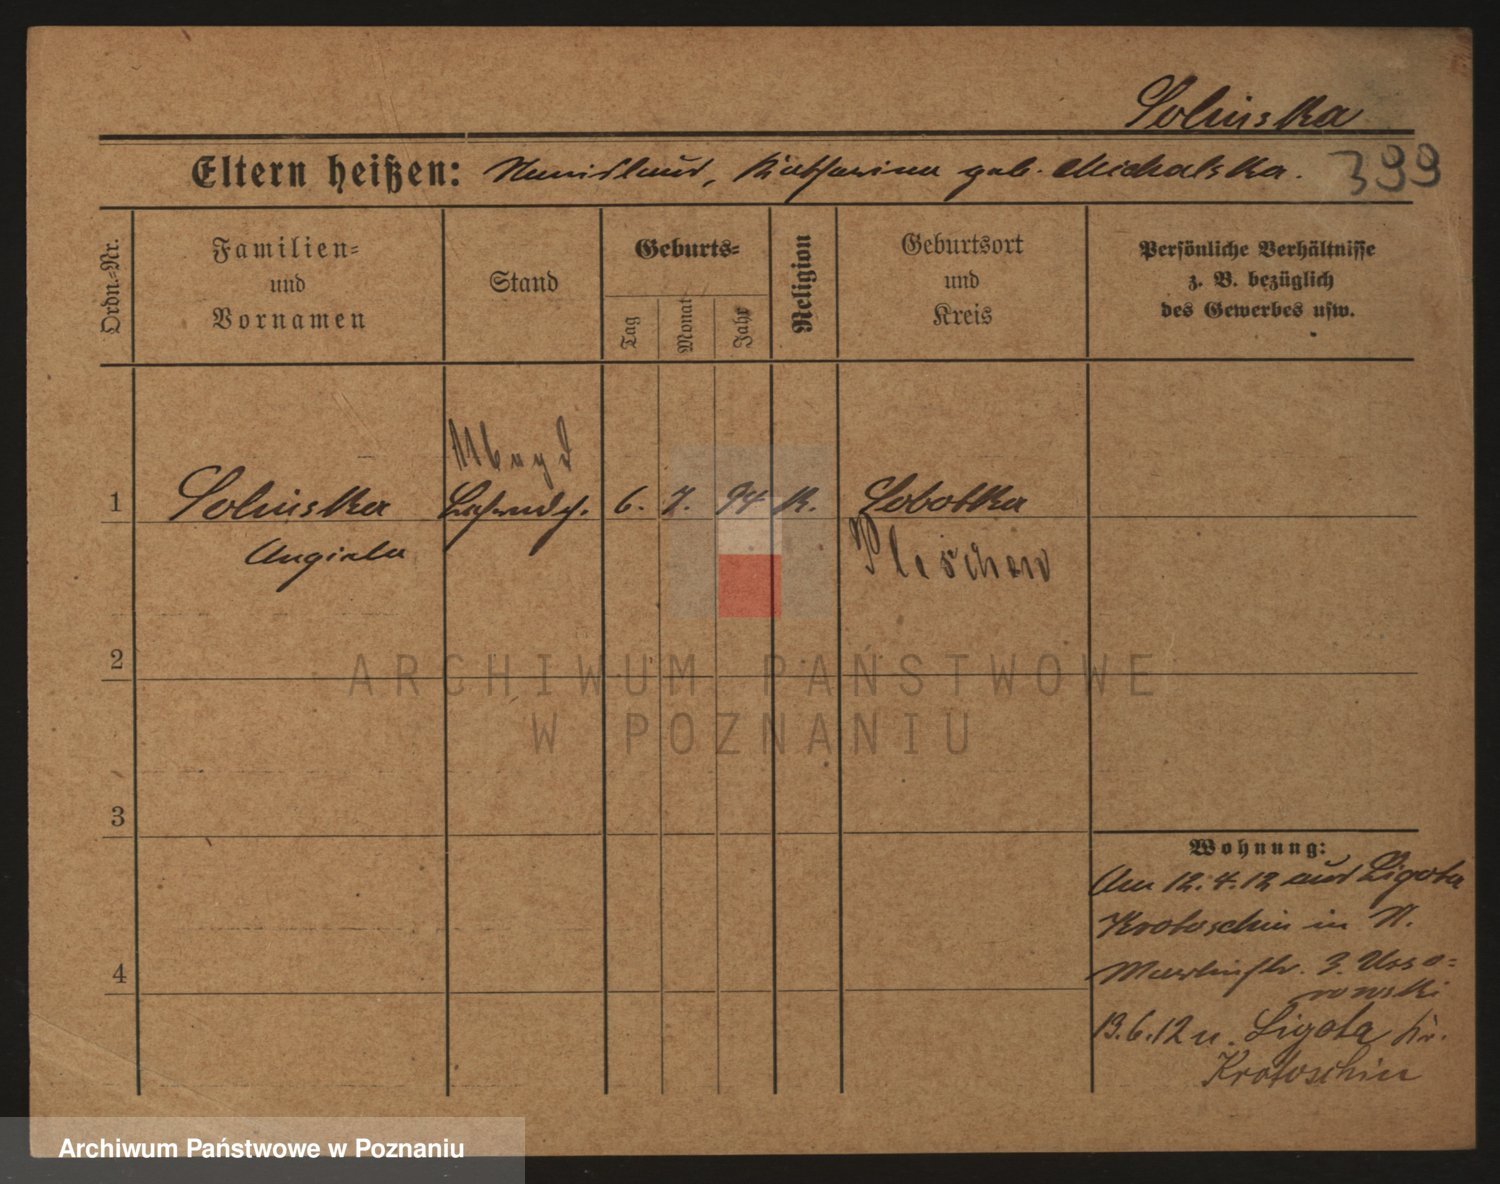 Solinska
Eltern heißen: Stanislaus, Katharina geb. Michalska.
399
Ordn.-Nr.
Familien-
und
Vornamen
Stand
Geburts-
Tag
Monat
Jahr
Religion
Geburtsort
und
Kreis
Persönliche Verhältnisse
z. B. bezüglich
des Gewerbes usw.
Magd
1 Solinska 6. 7. 94 K. Sobotka
Angiela
Pleschen
2
ARCHIWUM PAŃSTWOWE
W POZNANIU
3
Wohnung:
Am 12.4.12 aus Ligota
Krotoschin in N.
Martinstr. 3.
rowski
13.6.12 n. Ligota Kr.
Krotoschin
4
Archiwum Państwowe w Poznaniu